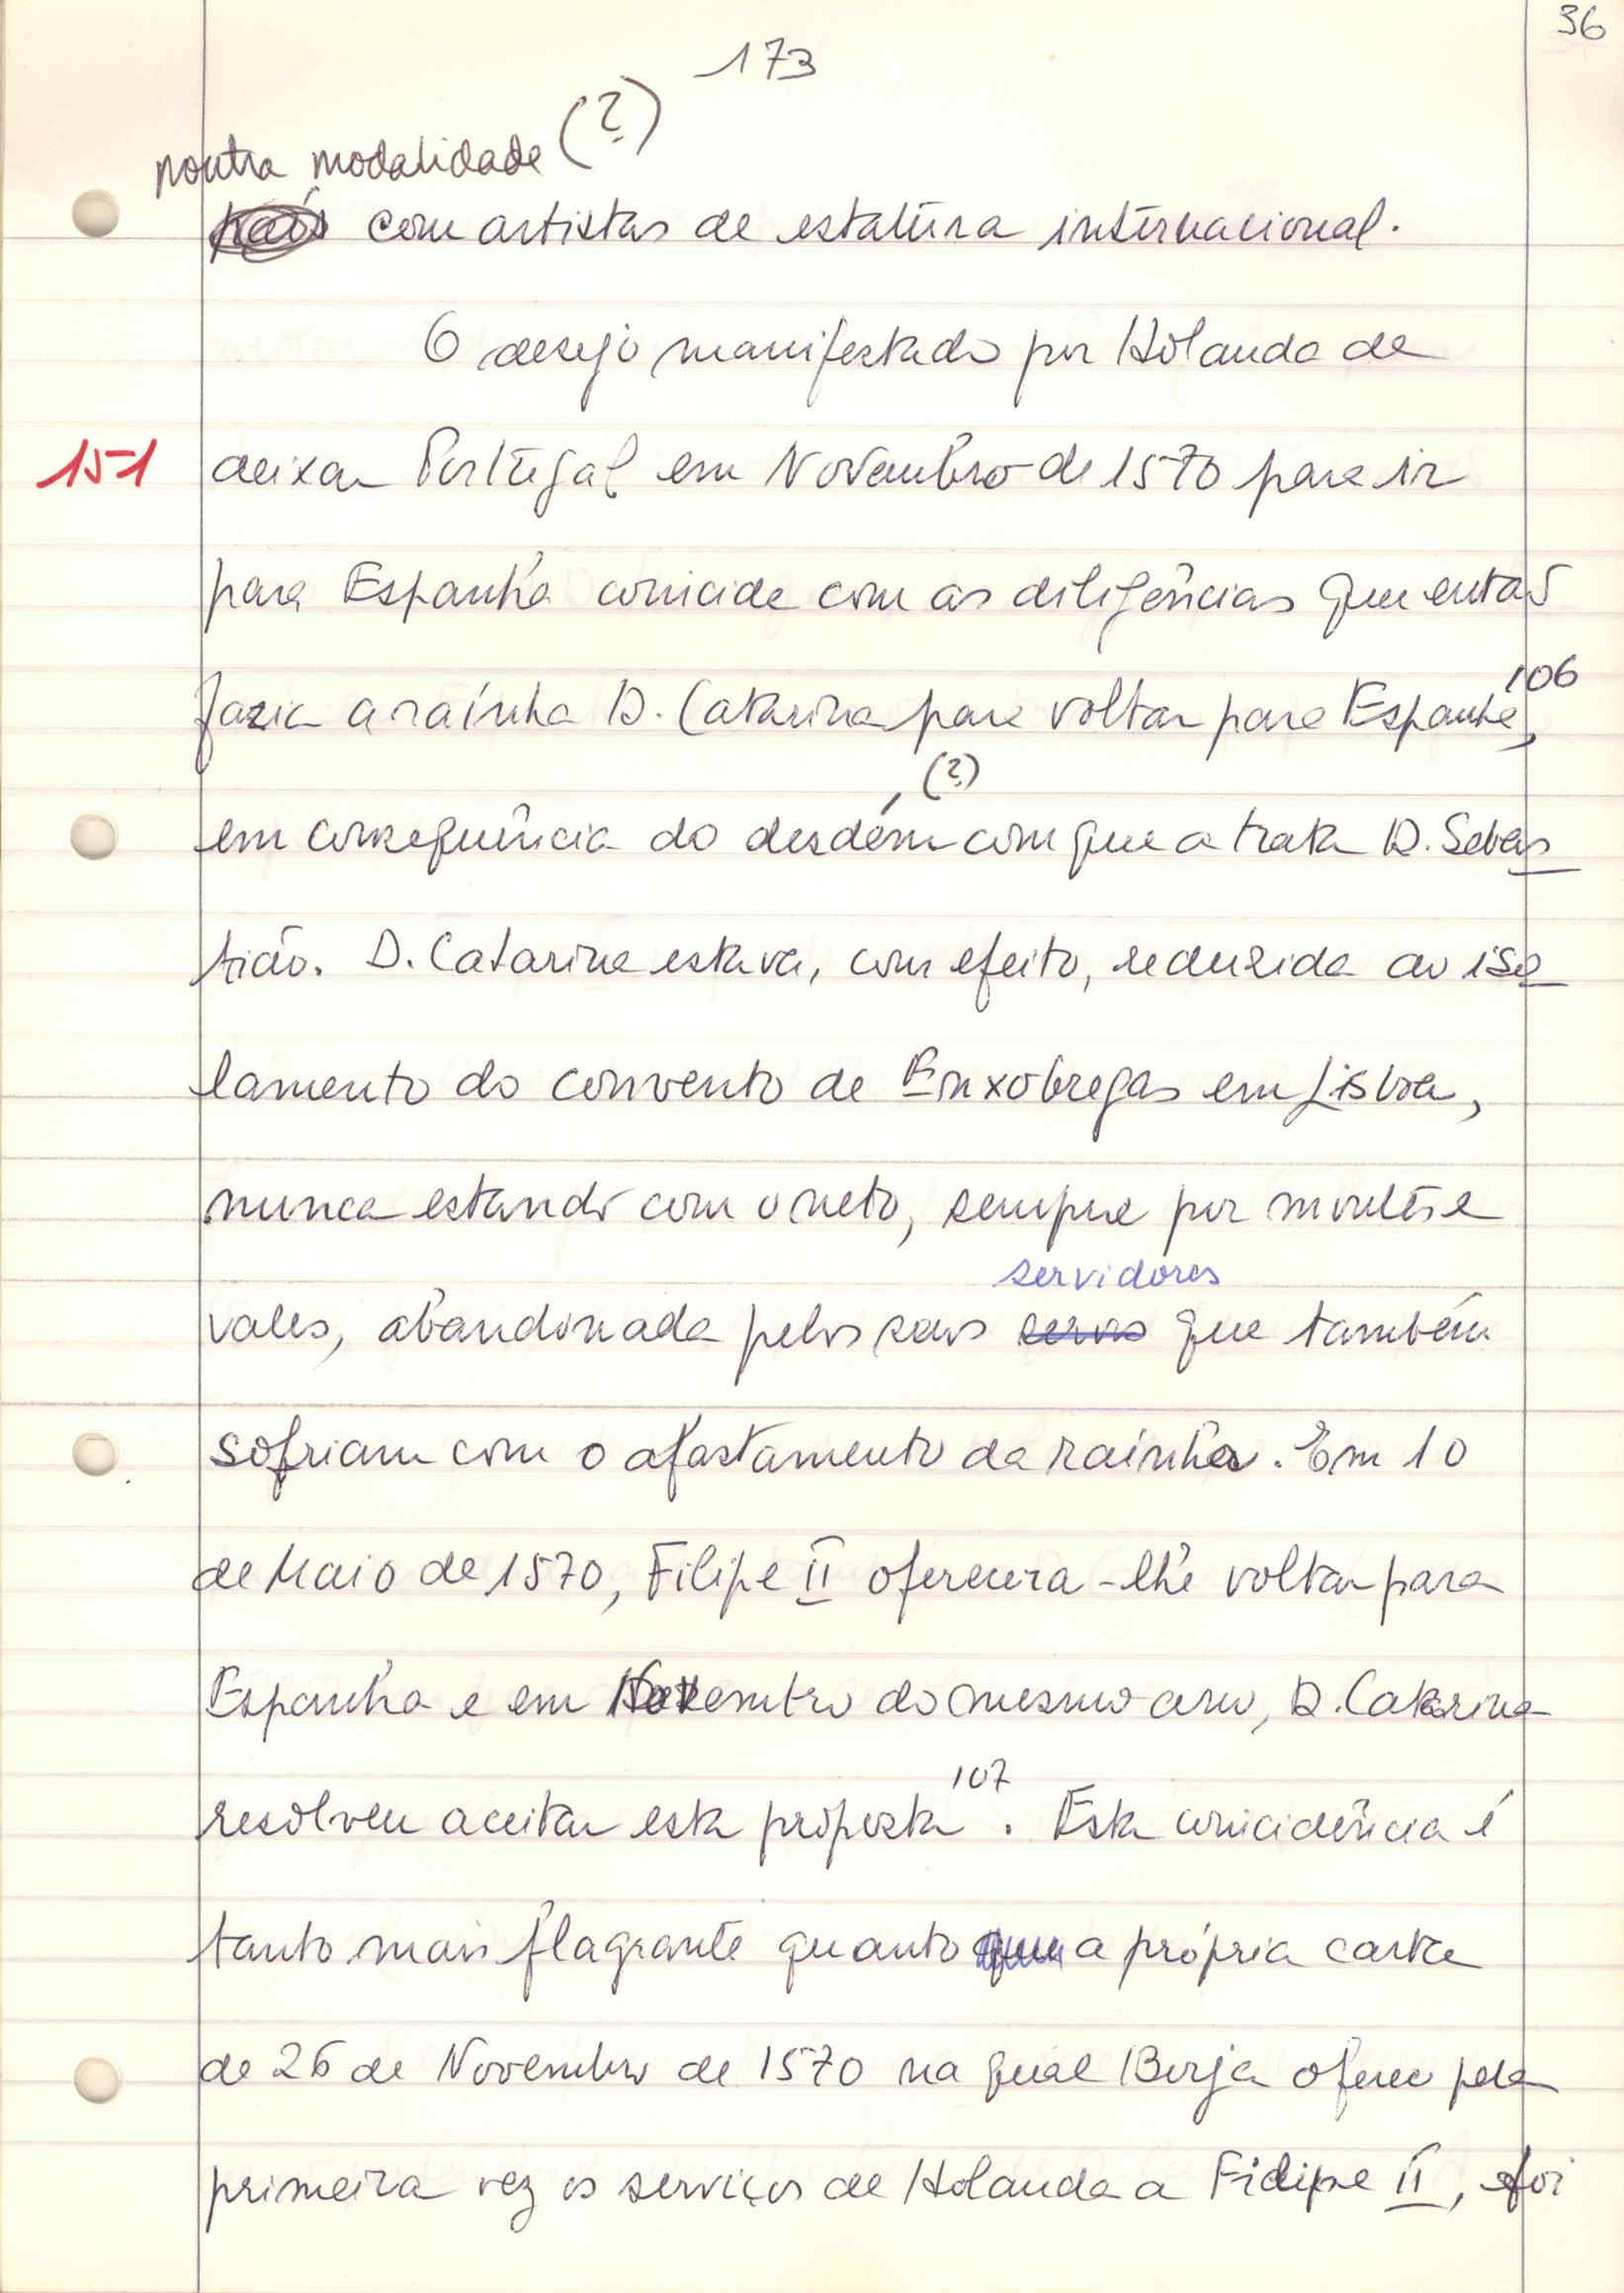 36
173
noutra modalidade (?)
país com artistas de estatura internacional.
O desejo manifestado por Holanda de
151 deixar Portugal em Novembro de 1570 para ir
para Espanha coincide com as diligências que então
fazia a raínha D. Catarina para voltar para Espanha,106
(?)
em consequência do desdém com que a trata D. Sebas
tião. D. Catarina estava, com efeito, reduzida ao iso
lamento do convento de Enxobregas em Lisboa,
nunca estando com o neto, sempre por montes e
servidores
vales, abandonada pelos seus servos que também
sofriam com o afastamento da raínha. Em 10
de Maio de 1570, Filipe II oferecera-lhe voltar para
Espanha e em Novembro do mesmo ano, D. Catarina
resolveu aceitar esta proposta 107. Esta coincidência é
tanto mais flagrante quanto que a própria carta
de 26 de Novembro de 1570 na qual Borja oferece pela
primeira vez os serviços de Holanda a Filipe II, foi